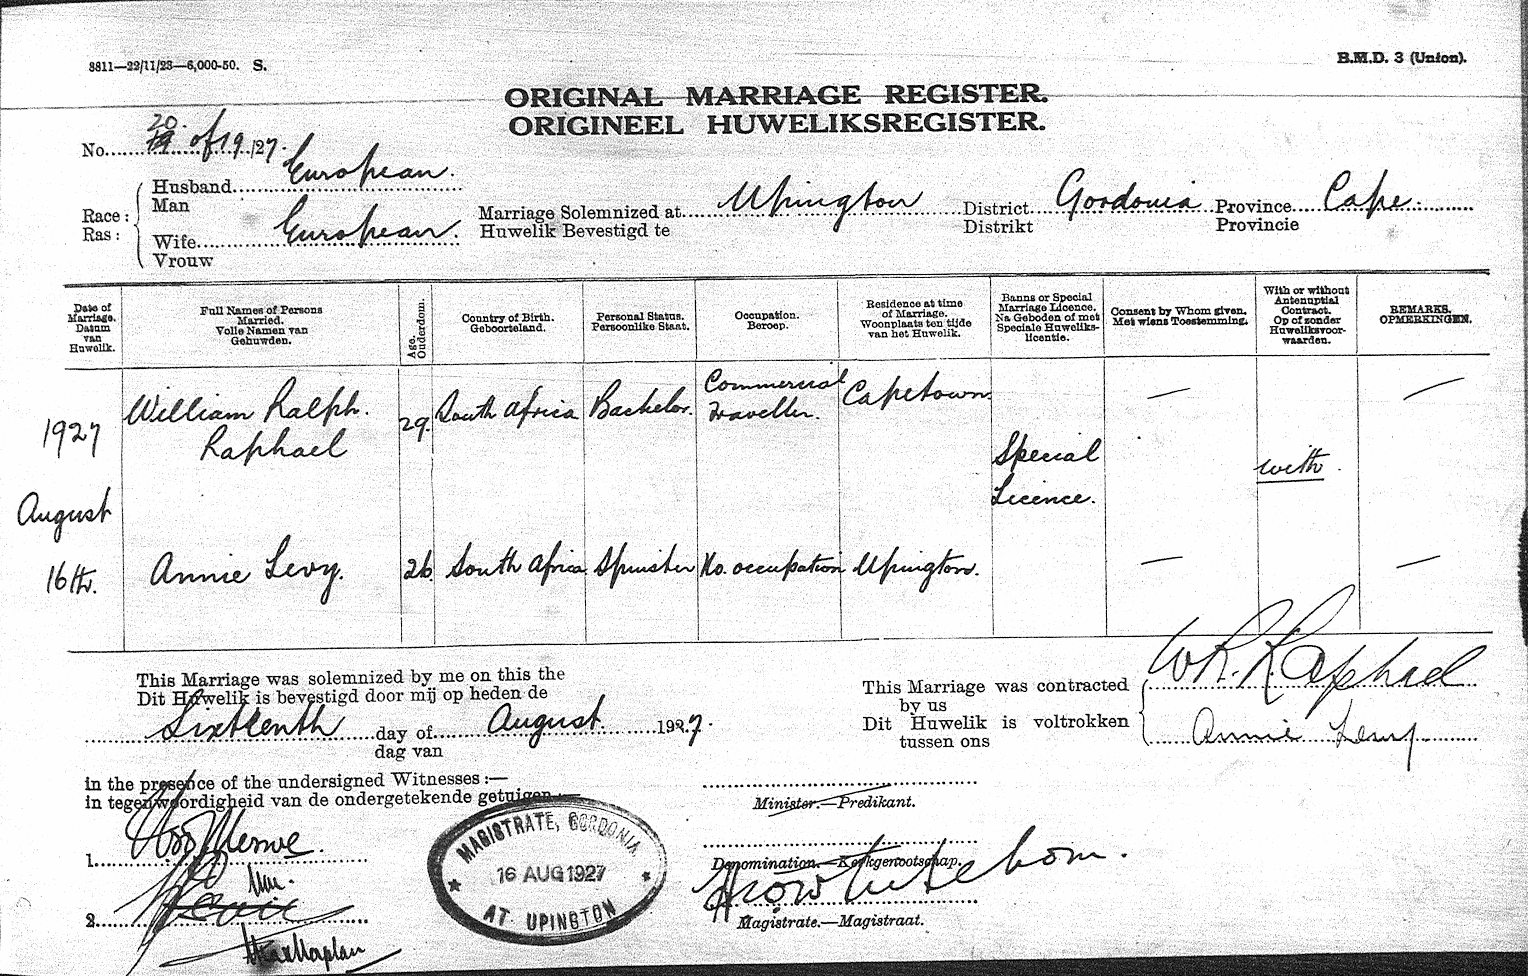 8811—22/11/23—6,000-50. S.
B.M.D. 3 (Union).
ORIGINAL MARRIAGE REGISTER.
ORIGINEEL HUWELIKSREGISTER.
No. 20. of 19/27.
Race:
Ras:
Husband European.
Man
Wife European.
Vrouw
Marriage Solemnized at Upington District Gordonia Province Cape.
Huwelik Bevestigd te Distrikt Provincie
Date of Marriage.
Datum van Huwelik.
Full Names of Persons Married.
Volle Namen van Gehuwden.
Age.
Ouderdom.
Country of Birth.
Geboorteland.
Personal Status.
Persoonlike Staat.
Occupation.
Beroep.
Residence at time of Marriage.
Woonplaats ten tijde van het Huwelik.
Banns or Special Marriage Licence.
Na Geboden of met Speciale Huweliks-licentie.
Consent by Whom given.
Met wiens Toestemming.
With or without Antenuptial Contract.
Op of sonder Huweliksvoor-waarden.
REMARKS.
OPMERKINGEN.
1927
August
16th.
William Ralph.
Raphael
29.
South Africa
Bachelor.
Commercial
Traveller.
Capetown
—
—
Special
Licence.
with.
Annie Levy.
26
South Africa
Spinster
No. occupation
Upington.
—
—
This Marriage was solemnized by me on this the
Dit Huwelik is bevestigd door mij op heden de
Sixteenth day of August. 1927.
dag van
This Marriage was contracted
by us
Dit Huwelik is voltrokken
tussen ons
W R. Raphael
Annie Levy.
In the presence of the undersigned Witnesses:—
In tegenwoordigheid van de ondergetekende getuigen:—
1.
2.
MAGISTRATE, GORDONIA,
16 AUG 1927
AT UPINGTON
Minister.—Predikant.
Denomination.—Kerkgenootschap.
Magistrate.—Magistraat.